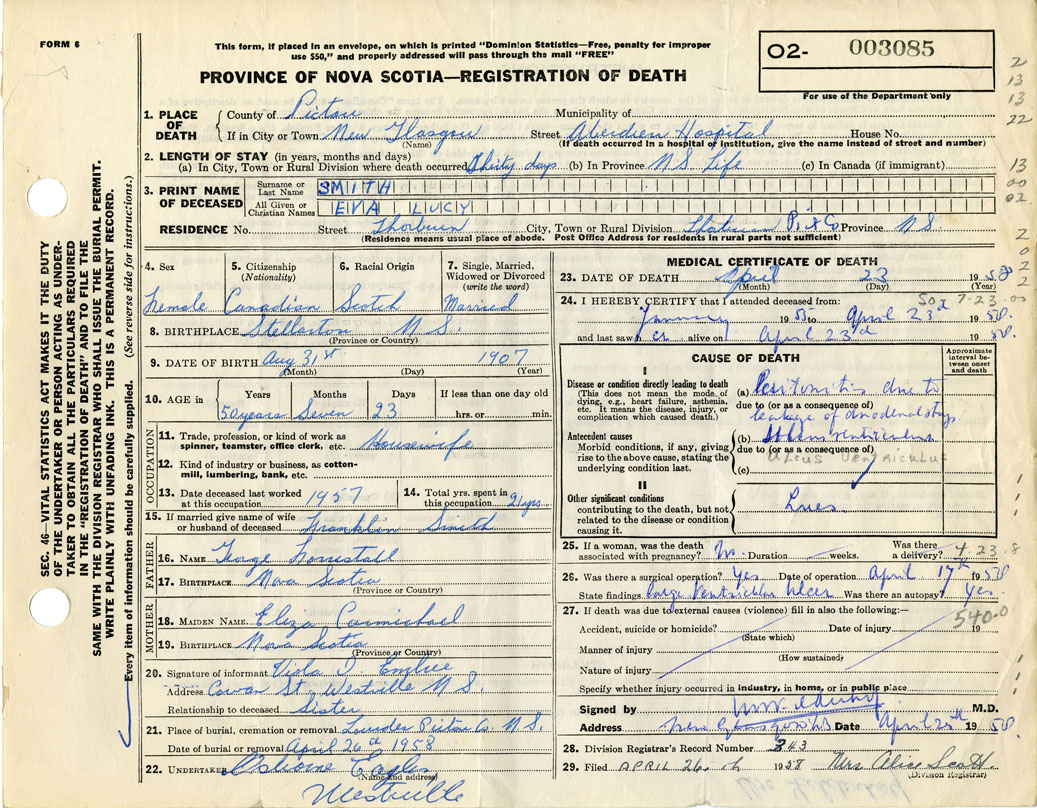 FORM 6
This form, if placed in an envelope, on which is printed "Dominion Statistics—Free, penalty for improper
use $50," and properly addressed will pass through the mail "FREE"
PROVINCE OF NOVA SCOTIA—REGISTRATION OF DEATH
O2- 003085
For use of the Department only
2
13
13
22
13
00
02
SEC. 46—VITAL STATISTICS ACT MAKES IT THE DUTY
OF THE UNDERTAKER OR PERSON ACTING AS UNDER-
TAKER TO OBTAIN ALL THE PARTICULARS REQUIRED
IN THE "REGISTRATION OF DEATH" AND TO FILE THE
SAME WITH THE DIVISION REGISTRAR WHO SHALL ISSUE THE BURIAL PERMIT.
WRITE PLAINLY WITH UNFADING INK. THIS IS A PERMANENT RECORD.
Every item of information should be carefully supplied. (See reverse side for instructions.)
1. PLACE OF DEATH County of Pictou Municipality of
If in City or Town New Glasgow Street Aberdien Hospital House No.
(Name) (If death occurred in a hospital or institution, give the name instead of street and number)
2. LENGTH OF STAY (in years, months and days)
(a) In City, Town or Rural Division where death occurred Thirty days (b) In Province N.S. Life (c) In Canada (if immigrant)
3. PRINT NAME OF DECEASED Surname or Last Name SMITH
All Given or Christian Names EVA LUCY
RESIDENCE No. Street Thorburn City, Town or Rural Division Pict Co Province N.S.
(Residence means usual place of abode. Post Office Address for residents in rural parts not sufficient)
4. Sex 5. Citizenship (Nationality) 6. Racial Origin 7. Single, Married, Widowed or Divorced (write the word)
Female Canadian Scotch Married
8. BIRTHPLACE Stellarton N.S.
(Province or Country)
9. DATE OF BIRTH Aug 31st 1907
(Month) (Day) (Year)
10. AGE in Years Months Days If less than one day old
50 years Seven 23 hrs. or min.
OCCUPATION
11. Trade, profession, or kind of work as spinner, teamster, office clerk, etc. Housewife
12. Kind of industry or business, as cotton-mill, lumbering, bank, etc.
13. Date deceased last worked at this occupation 1957 14. Total yrs. spent in this occupation 21 yrs.
15. If married give name of wife or husband of deceased Franklin Smith
FATHER
16. NAME George
17. BIRTHPLACE Nova Scotia
(Province or Country)
MOTHER
18. MAIDEN NAME Eliza Carmichael
19. BIRTHPLACE Nova Scotia
(Province or Country)
20. Signature of informant Viola D Embree
Address Cowan St, Westville N.S.
Relationship to deceased Sister
21. Place of burial, cremation or removal Pictou Co. N.S.
Date of burial or removal April 26th 1958
22. UNDERTAKER Osborne Eagles
(Name and address)
Westville
MEDICAL CERTIFICATE OF DEATH
23. DATE OF DEATH April 23 1958
(Month) (Day) (Year)
24. I HEREBY CERTIFY that I attended deceased from:
January 19 to April 23rd 1958
and last saw h er alive on April 23rd 1958.
CAUSE OF DEATH
Approximate interval between onset and death
I
Disease or condition directly leading to death
(This does not mean the mode of dying, e.g., heart failure, asthenia, etc. It means the disease, injury, or complication which caused death.)
(a) Peritonitis due to
due to (or as a consequence of)
leakage of duodenal
Antecedent causes
Morbid conditions, if any, giving rise to the above cause, stating the underlying condition last.
(b) Ulcus ventriculus
due to (or as a consequence of)
ULCUS VENTRICULUS
(c)
II
Other significant conditions
contributing to the death, but not related to the disease or condition causing it.
Lues
25. If a woman, was the death associated with pregnancy? No. Duration weeks. Was there a delivery? 4-23-8
26. Was there a surgical operation? Yes Date of operation April 17th 1958
State findings Large Ventricular Ulcer Was there an autopsy? Yes
27. If death was due to external causes (violence) fill in also the following:— 540.0
Accident, suicide or homicide? Date of injury 19
(State which)
Manner of injury
(How sustained)
Nature of injury
Specify whether injury occurred in industry, in home, or in public place
Signed by M.D.
Address New Glasgow N.S. Date April 1958.
28. Division Registrar's Record Number 343
29. Filed APRIL 26th 1958 Mrs Alice Scott.
(Division Registrar)